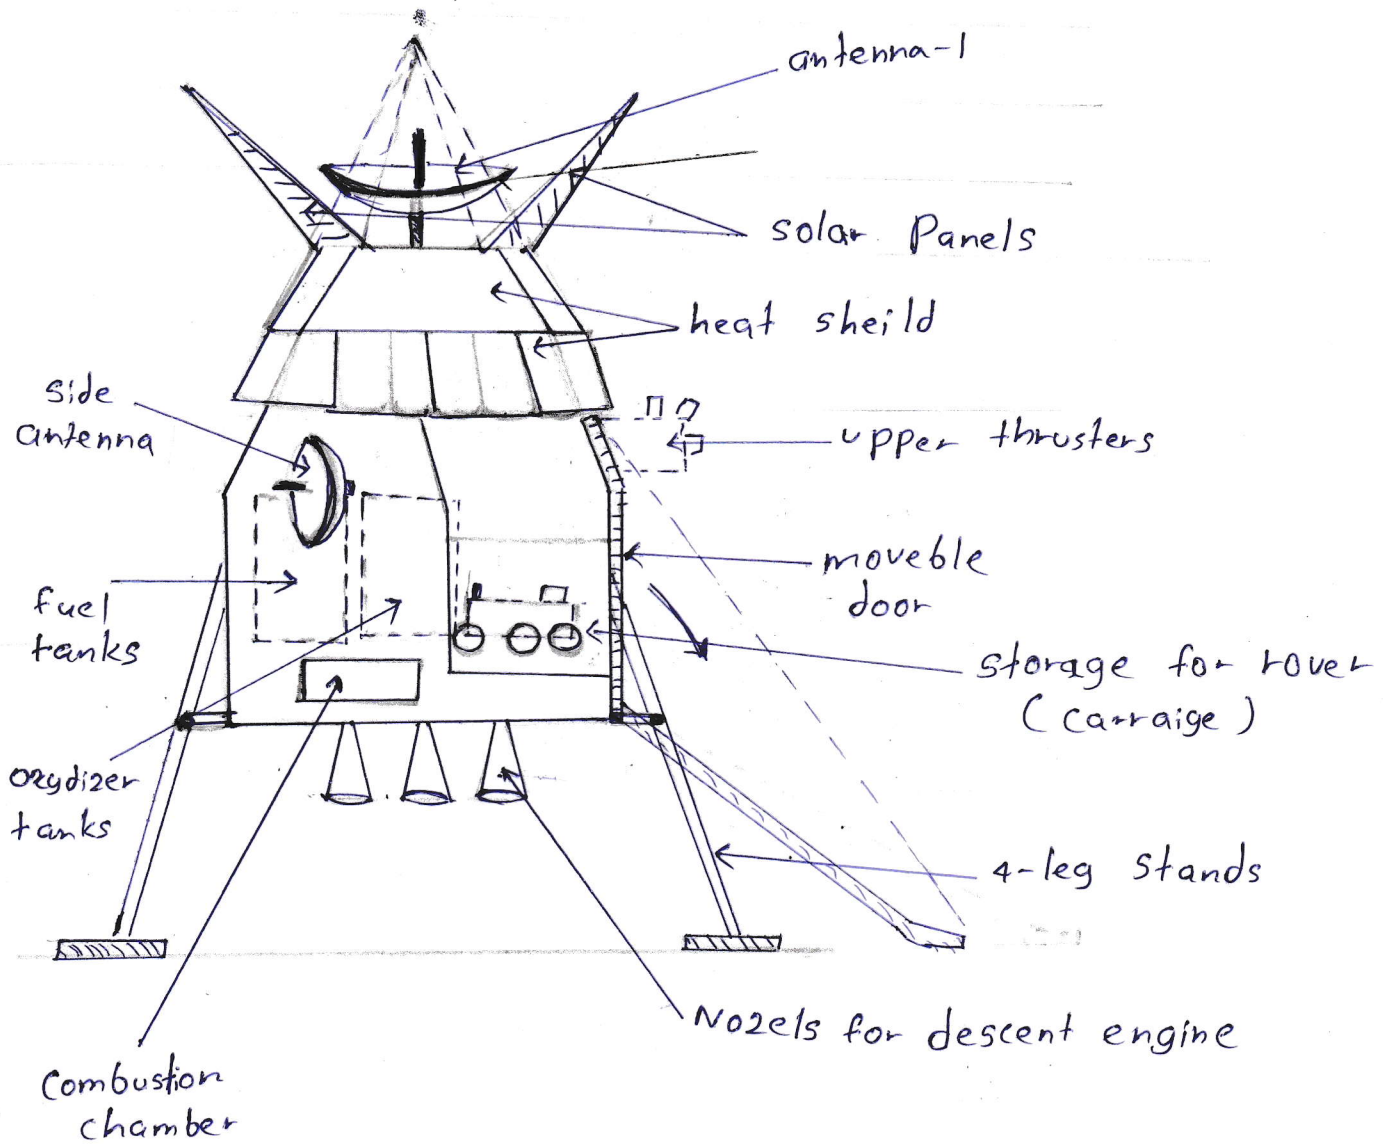 antenna-1
solar Panels
heat sheild
side
antenna
upper thrusters
moveble
door
fuel
tanks
storage for rover
(carraige)
oxydizer
tanks
4-leg stands
Nozels for descent engine
Combustion
chamber